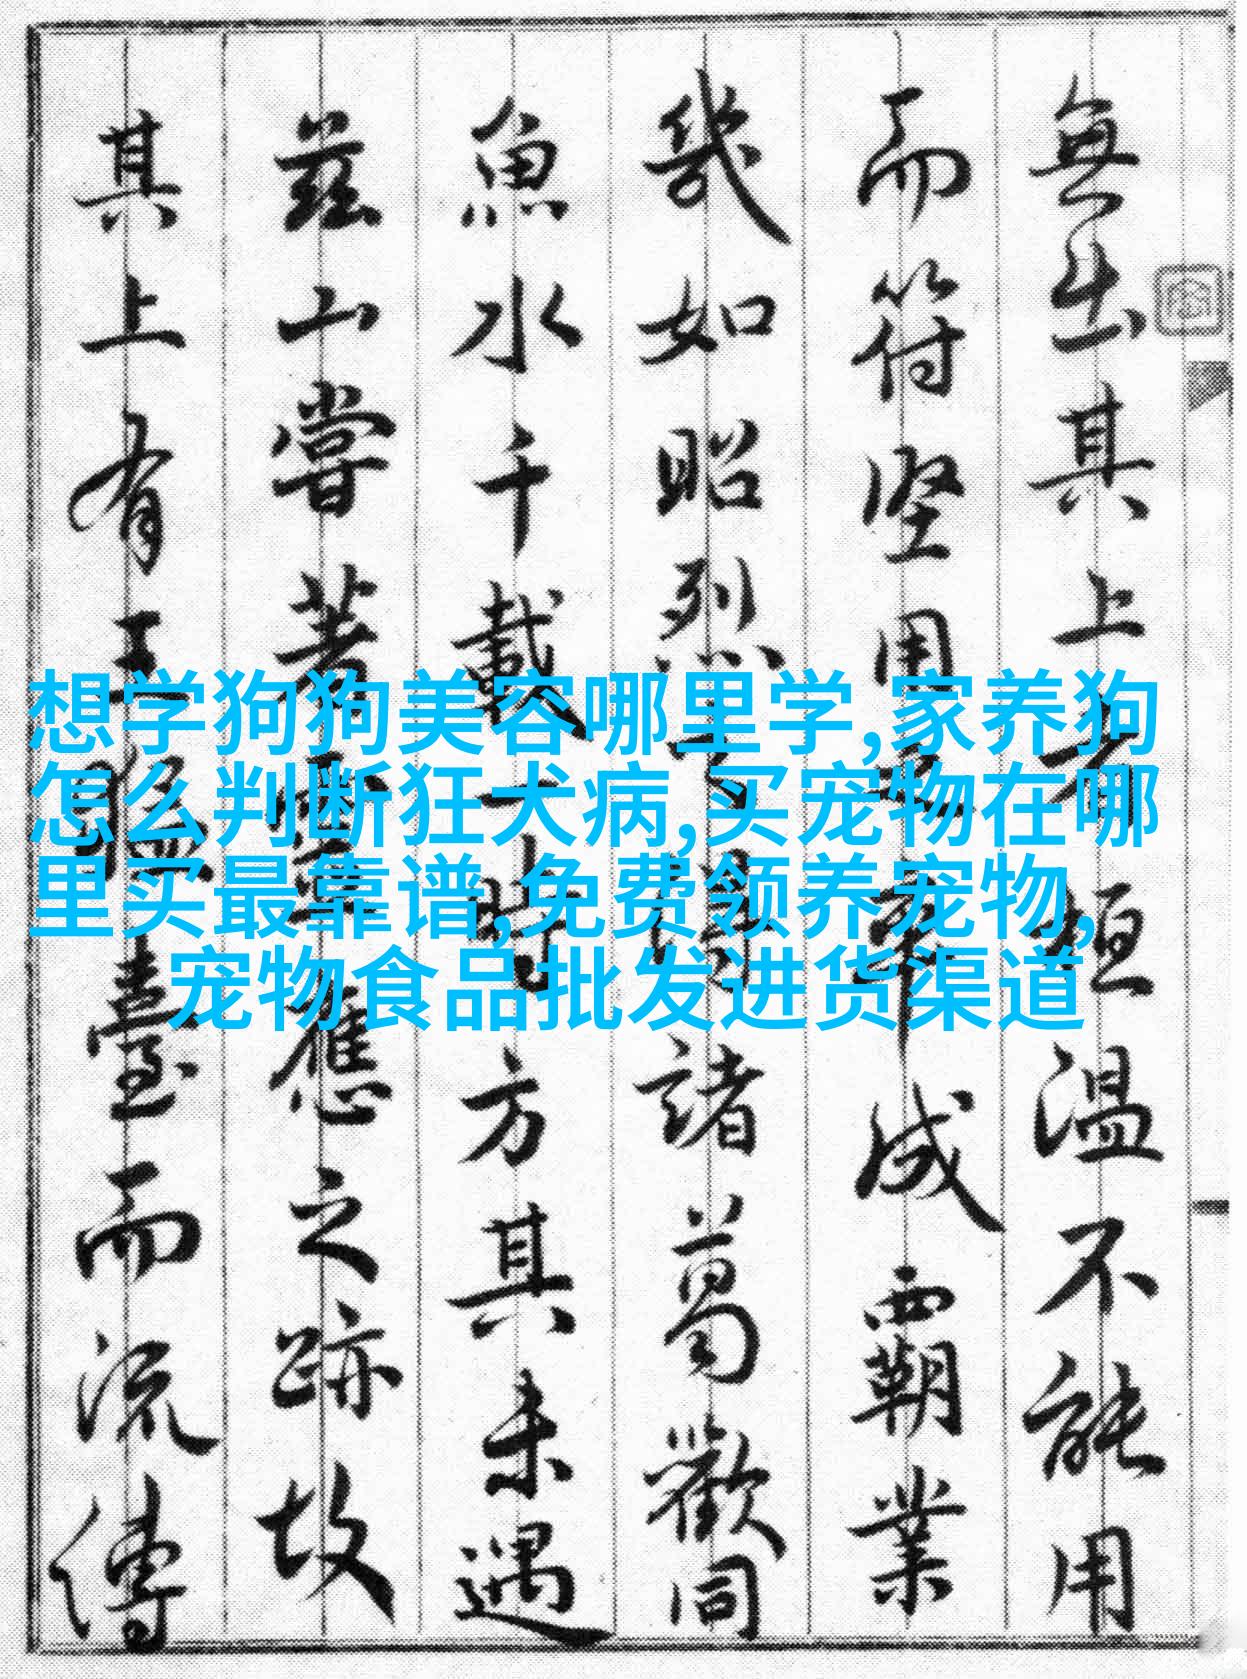 無出其上者桓温不能用
而符堅用
成霸業
幾如昭烈
諸葛歡同
魚水千載一時方其未遇
茲山嘗著
應之跡故
其上有王猛臺而流傳
想学狗狗美容哪里学,家养狗
怎么判断狂犬病,买宠物在哪
里买最靠谱,免费领养宠物,
宠物食品批发进货渠道